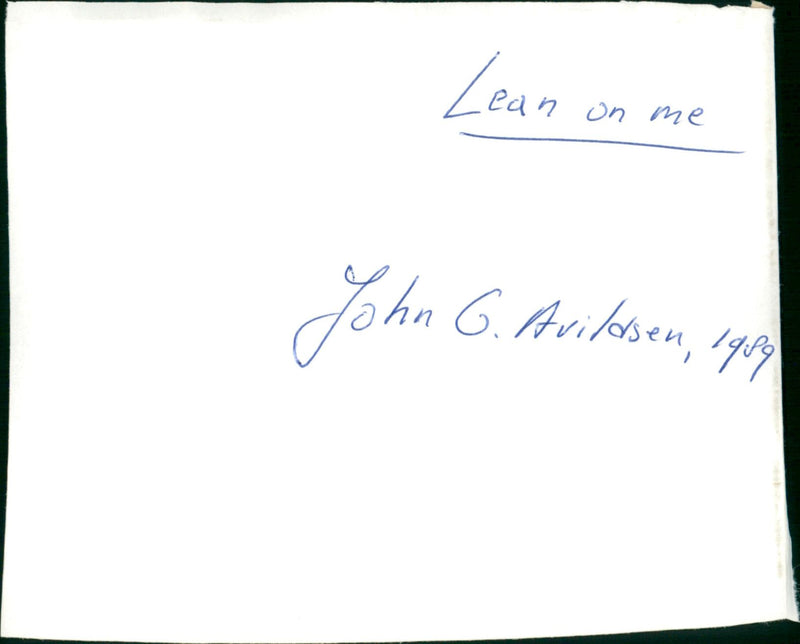 Lean on me
John G. Avildsen, 1989